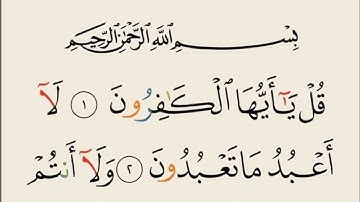 بِسْمِ ٱللَّهِ ٱلرَّحْمَٰنِ ٱلرَّحِيمِ
قُلْ يَٰٓأَيُّهَا ٱلْكَٰفِرُونَ ١ لَآ
أَعْبُدُ مَا تَعْبُدُونَ ٢ وَلَآ أَنتُمْ